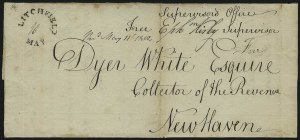 LITCHFIELD
11
MAY
Supervisors Office
Free Ephm Kirby Supervisor
Recd May 11th 1802
Free
Dyer White Esquire
Collector of the Revenue
New Haven